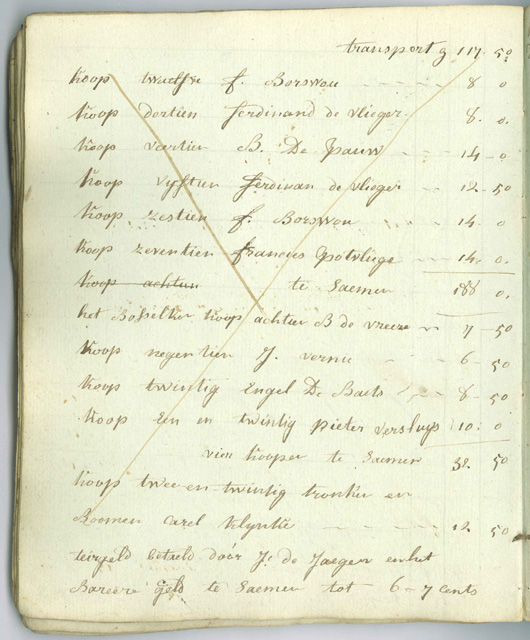 transport g 117. 50
koop twaelfve f. Borswou 8 0
koop dertien ferdinand de vlieger 8. 0.
koop veertien B. De Pauw 14 - 0
koop vyftien ferdinan de vlieger 12 - 50
koop zestien f. Borswou 14. 0
koop zeventien francies potvliege 14. 0.
koop achtien te saemen 188 0.
het Bosselken koop achtien B de vreeze 7 - 50
koop negentien J. vernie 6 - 50
koop twintig Engel De Baets 8 - 50
koop Een en twintig pieter versluys 10. 0
vier koopen te saemen 32. 50
koop twee en twintig tronken en
Boomen Carel Klynke 12 50
betaeld door J. de Jaeger
Bareere geld te saemen tot 6 - 7 cents